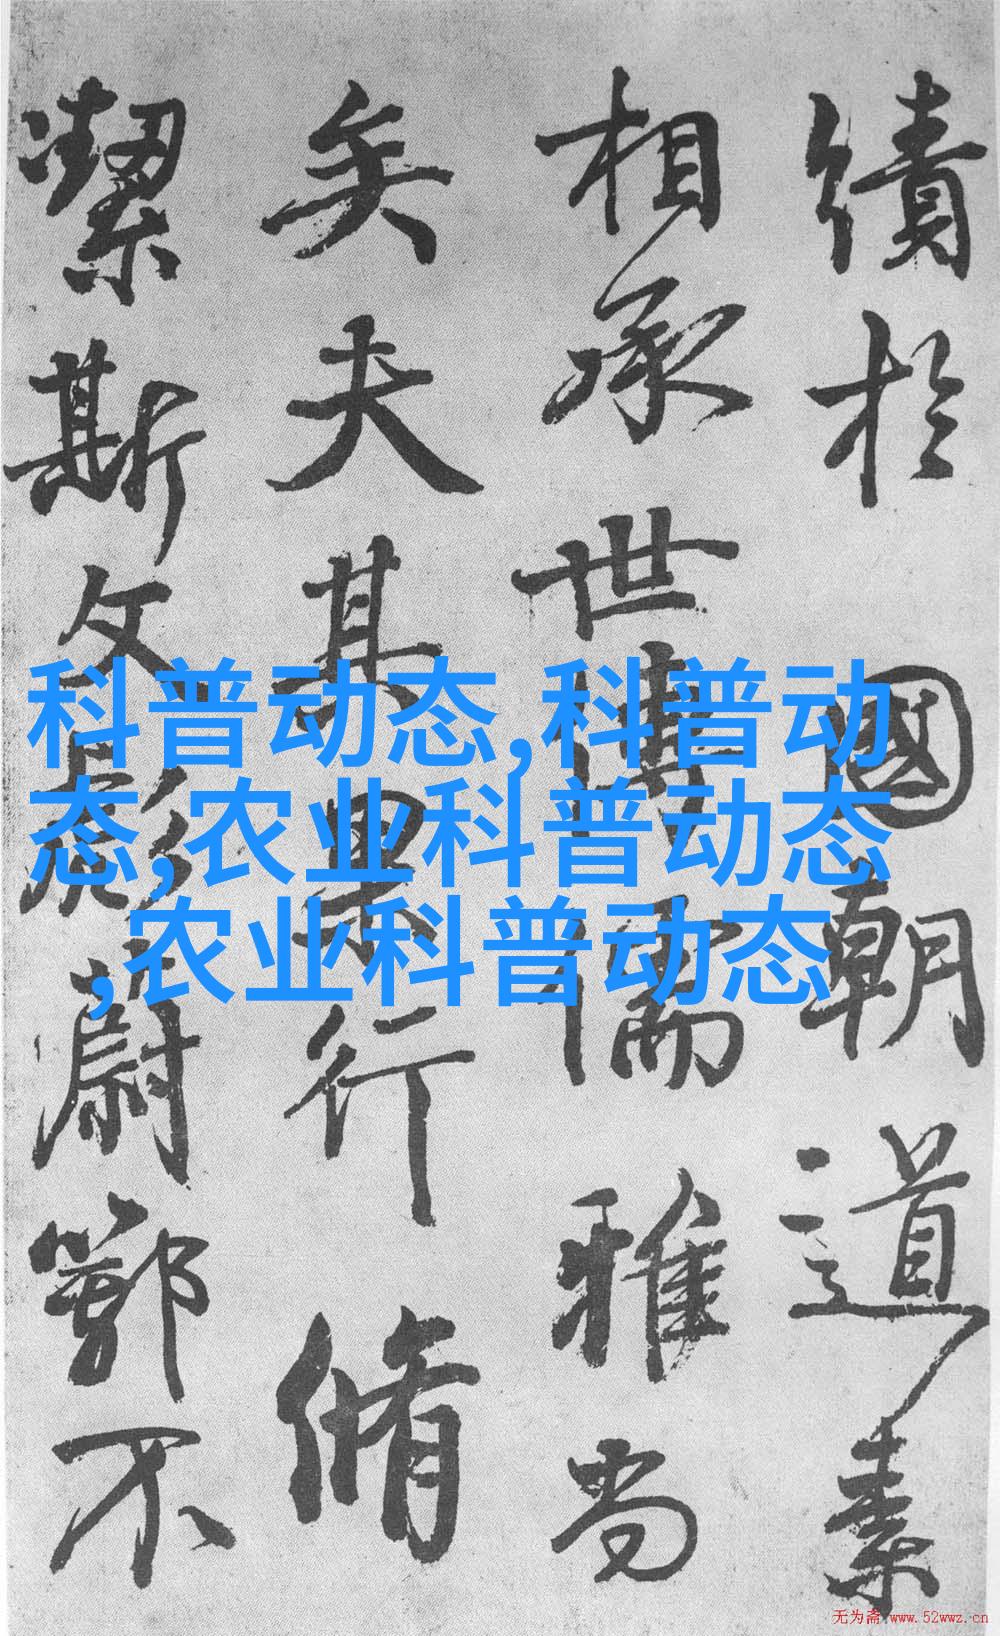 績於國朝道素
相承世博儒雅尚
矣夫其果行脩
潔斯文彪蔚鄂不
科普动态,科普动
态,农业科普动态
,农业科普动态
无为斋 www.52wwz.cn